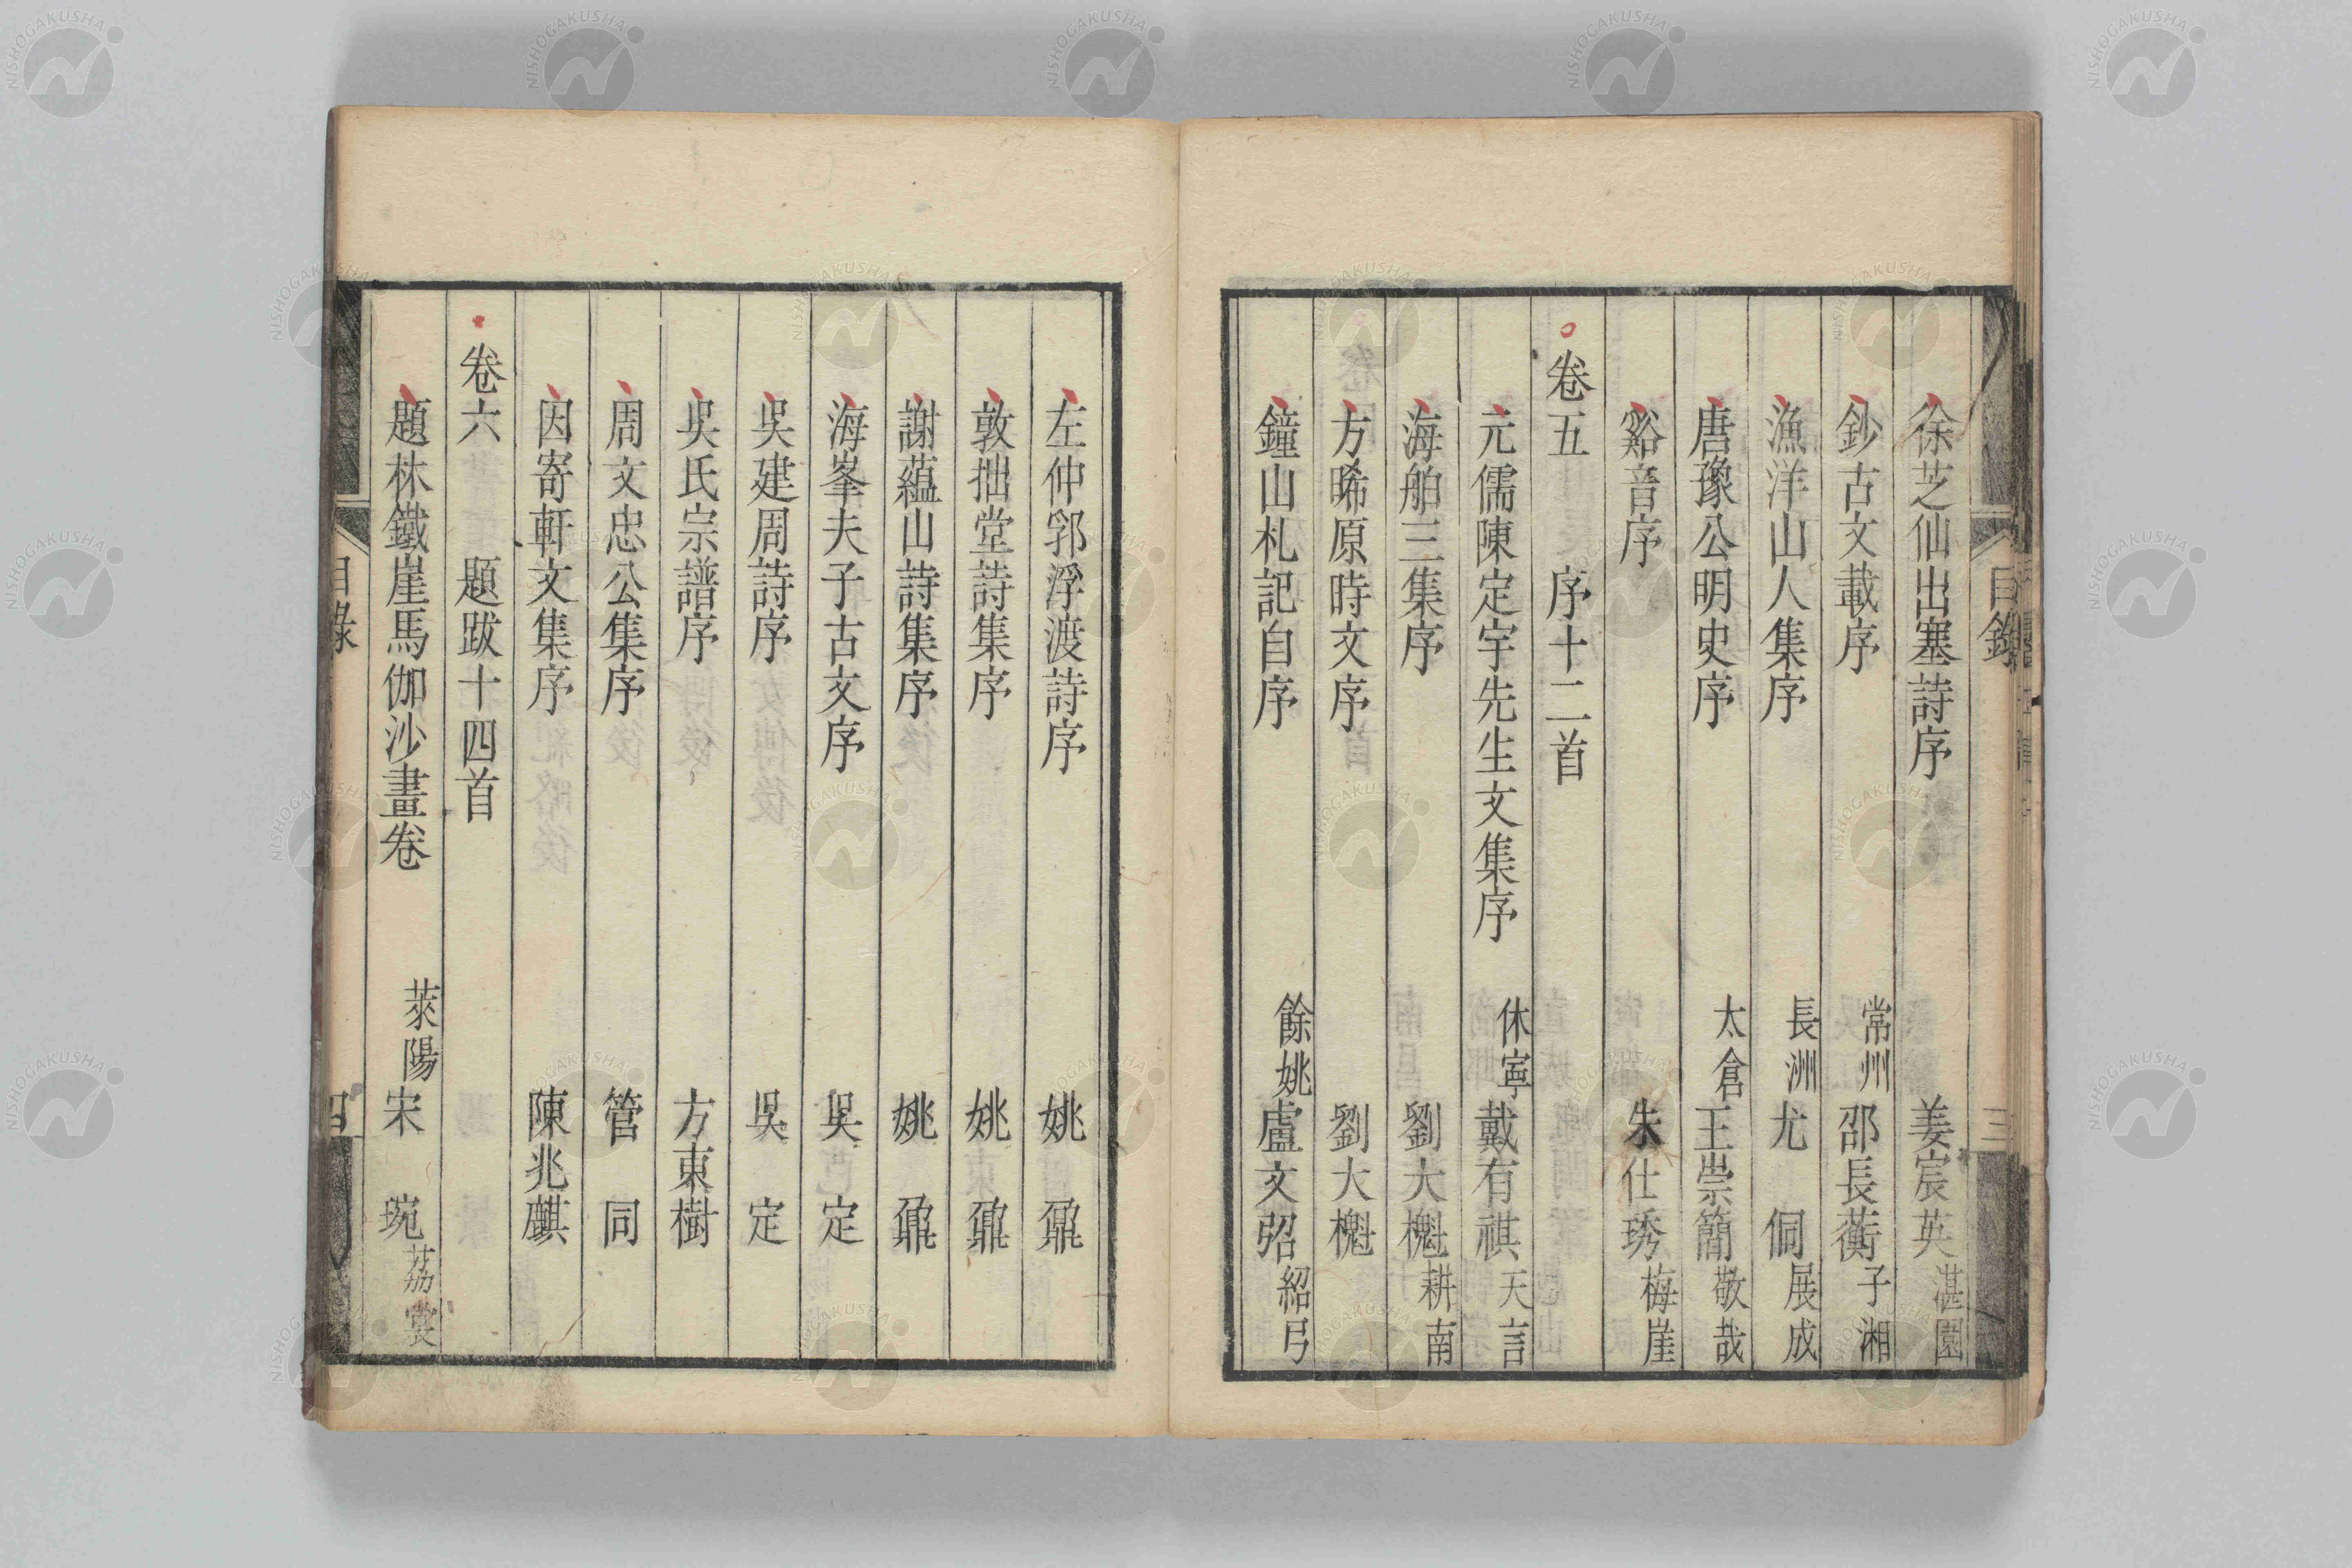 目錄
三
徐芝仙出塞詩序 姜宸英 湛園
鈔古文載序 常州 邵長蘅 子湘
漁洋山人集序 長洲 尤 侗 展成
唐豫公明史序 太倉 王崇簡 敬哉
谿音序 朱仕琇 梅崖
卷五 序十二首
元儒陳定宇先生文集序 休寧 戴有祺 天言
海舶三集序 劉大櫆 耕南
方晞原時文序 劉大櫆
鐘山札記自序 餘姚 盧文弨 紹弓
左仲郛浮渡詩序 姚 鼐
敦拙堂詩集序 姚 鼐
謝蘊山詩集序 姚 鼐
海峯夫子古文序 吳 定
吳建周詩序 吳 定
吳氏宗譜序 方東樹
周文忠公集序 管 同
因寄軒文集序 陳兆麒
卷六 題跋十四首
題林鐵崖馬伽沙畫卷 萊陽 宋 琬 荔裳
目錄
四
NISHOGAKUSHA